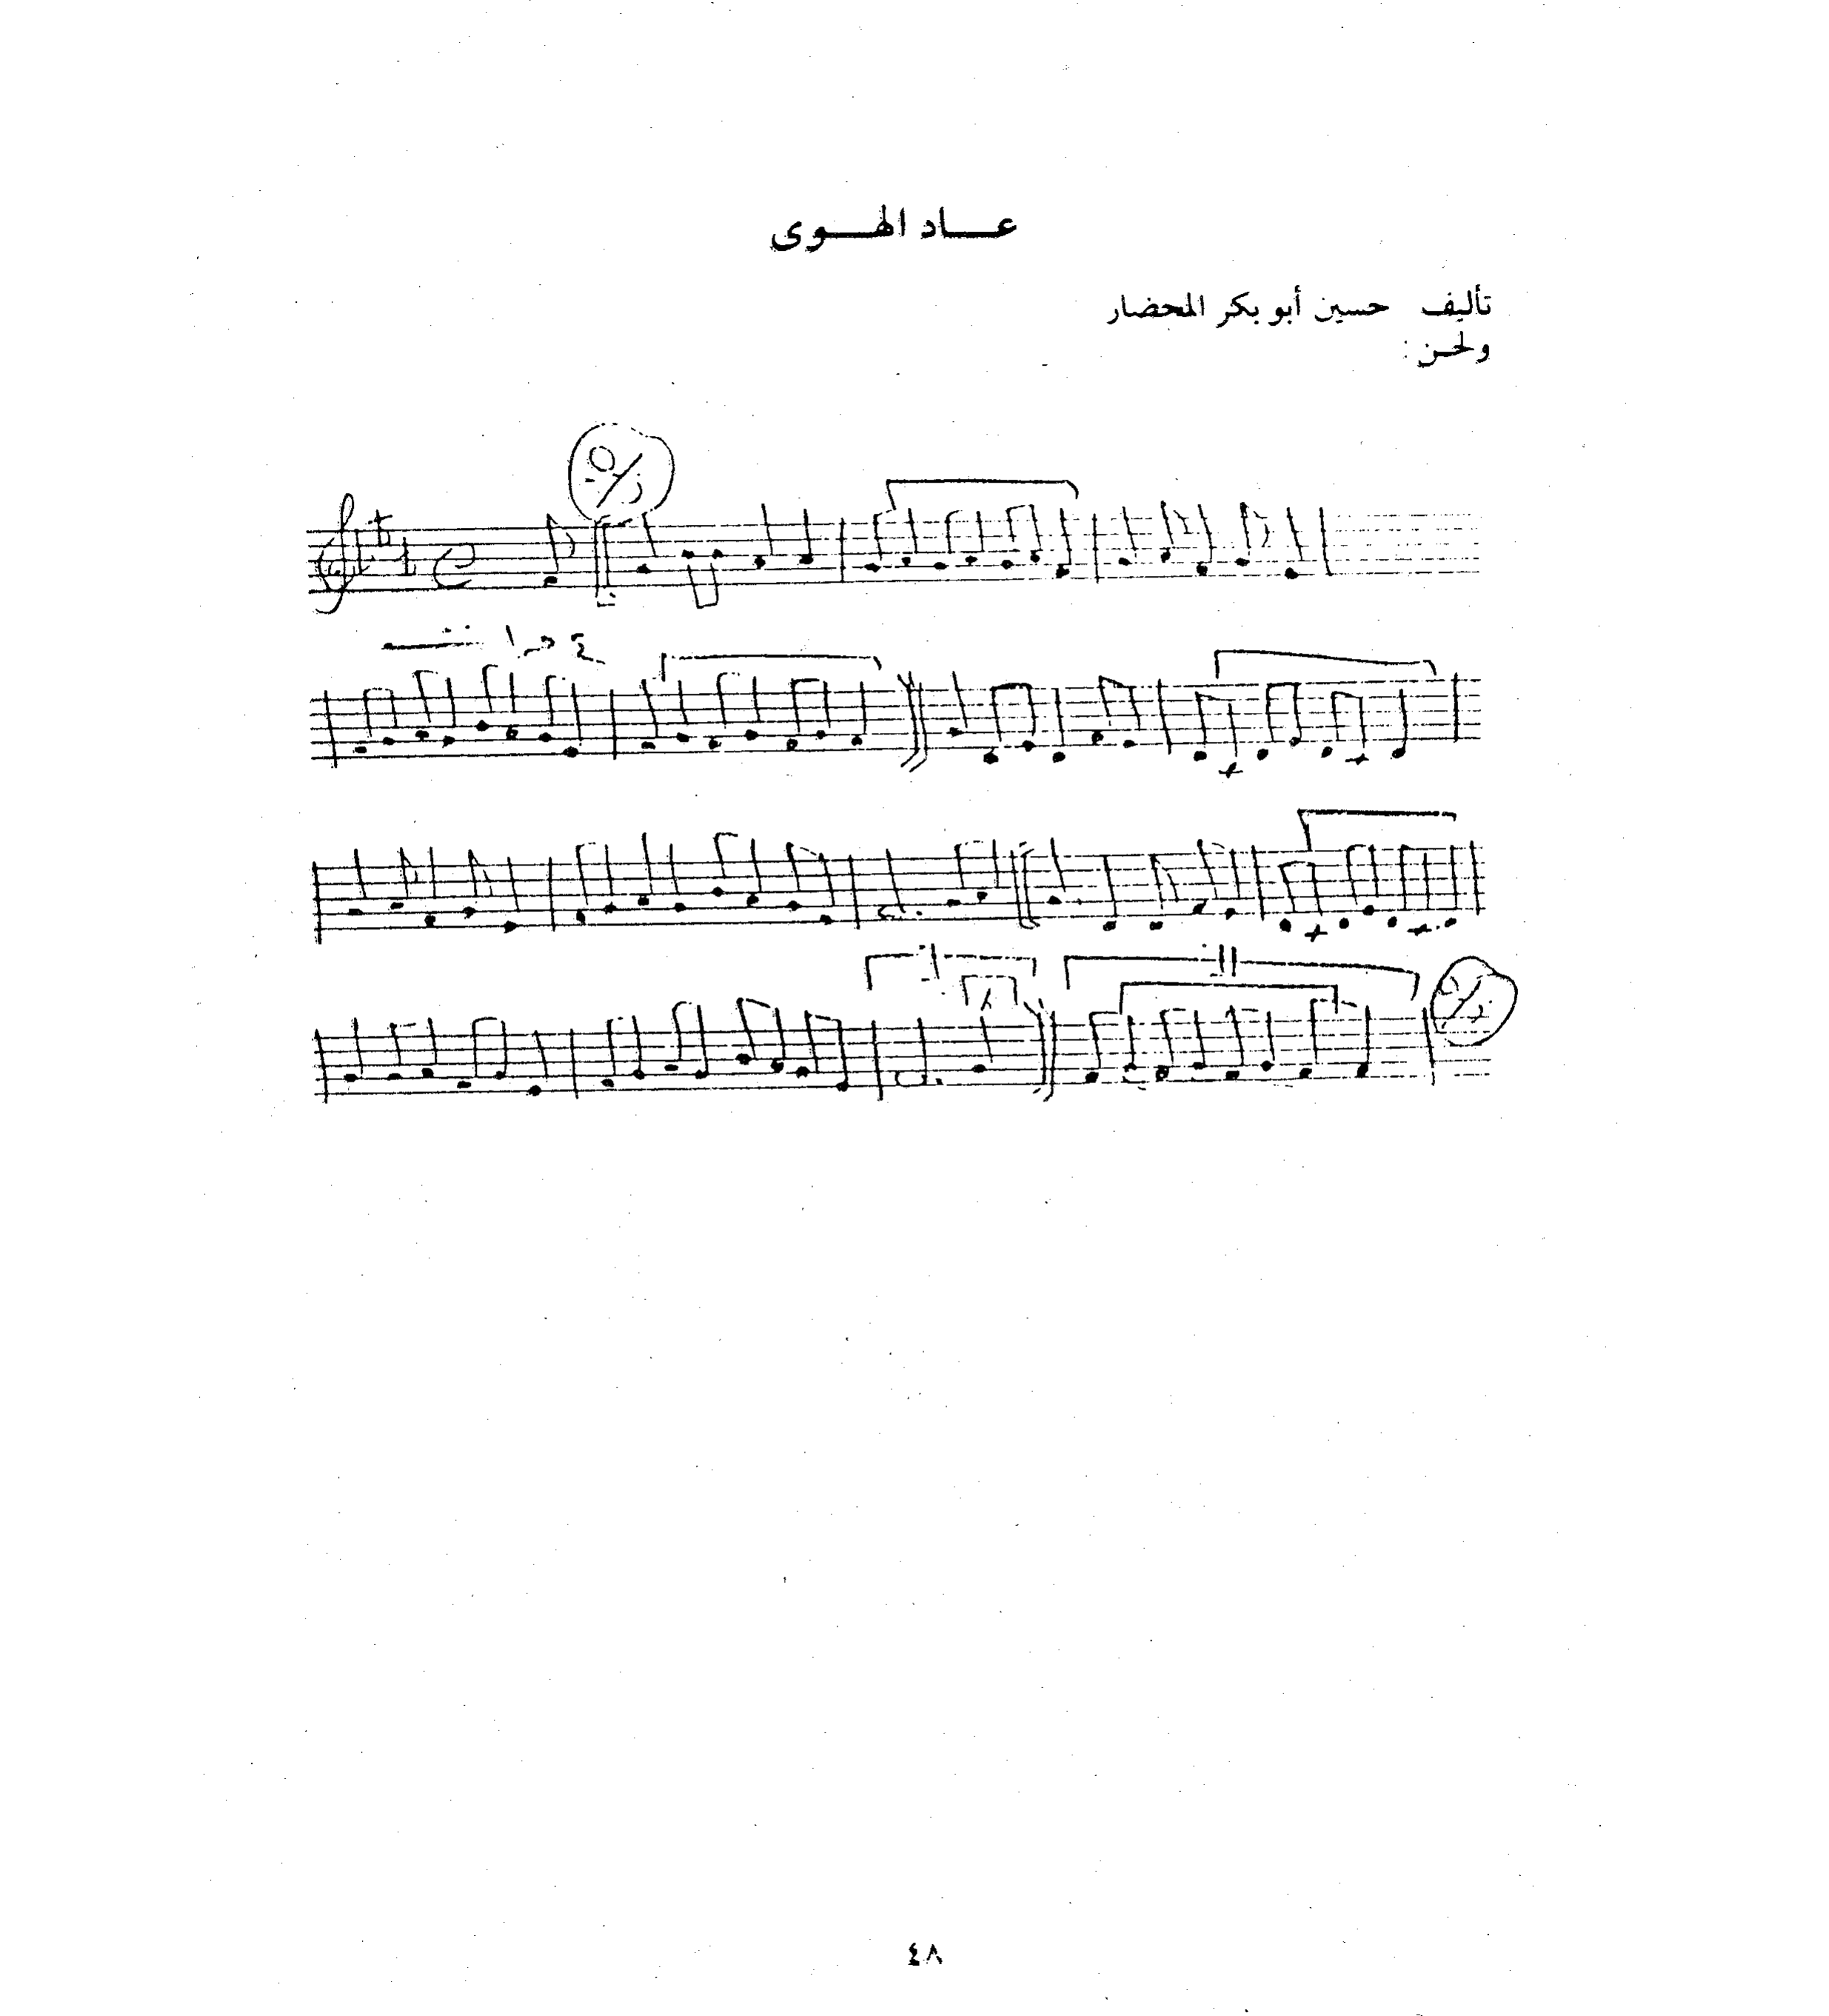 عاد الهوى
تأليف حسين أبو بكر المحضار
ولحن :
٤٨